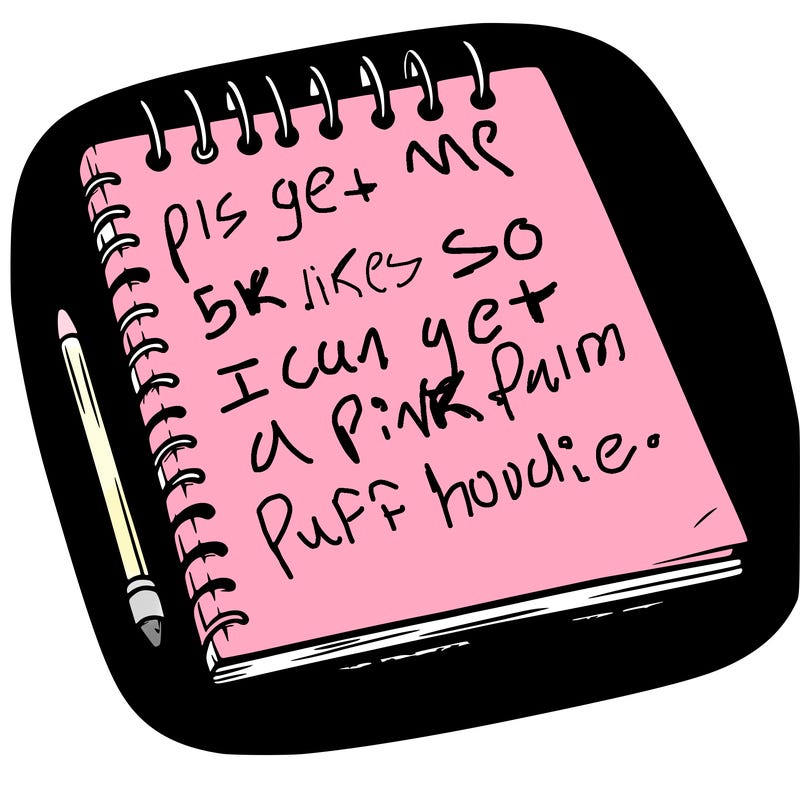 pls get me
5K likes so
I can get
a pink palm
Puff hoodie.